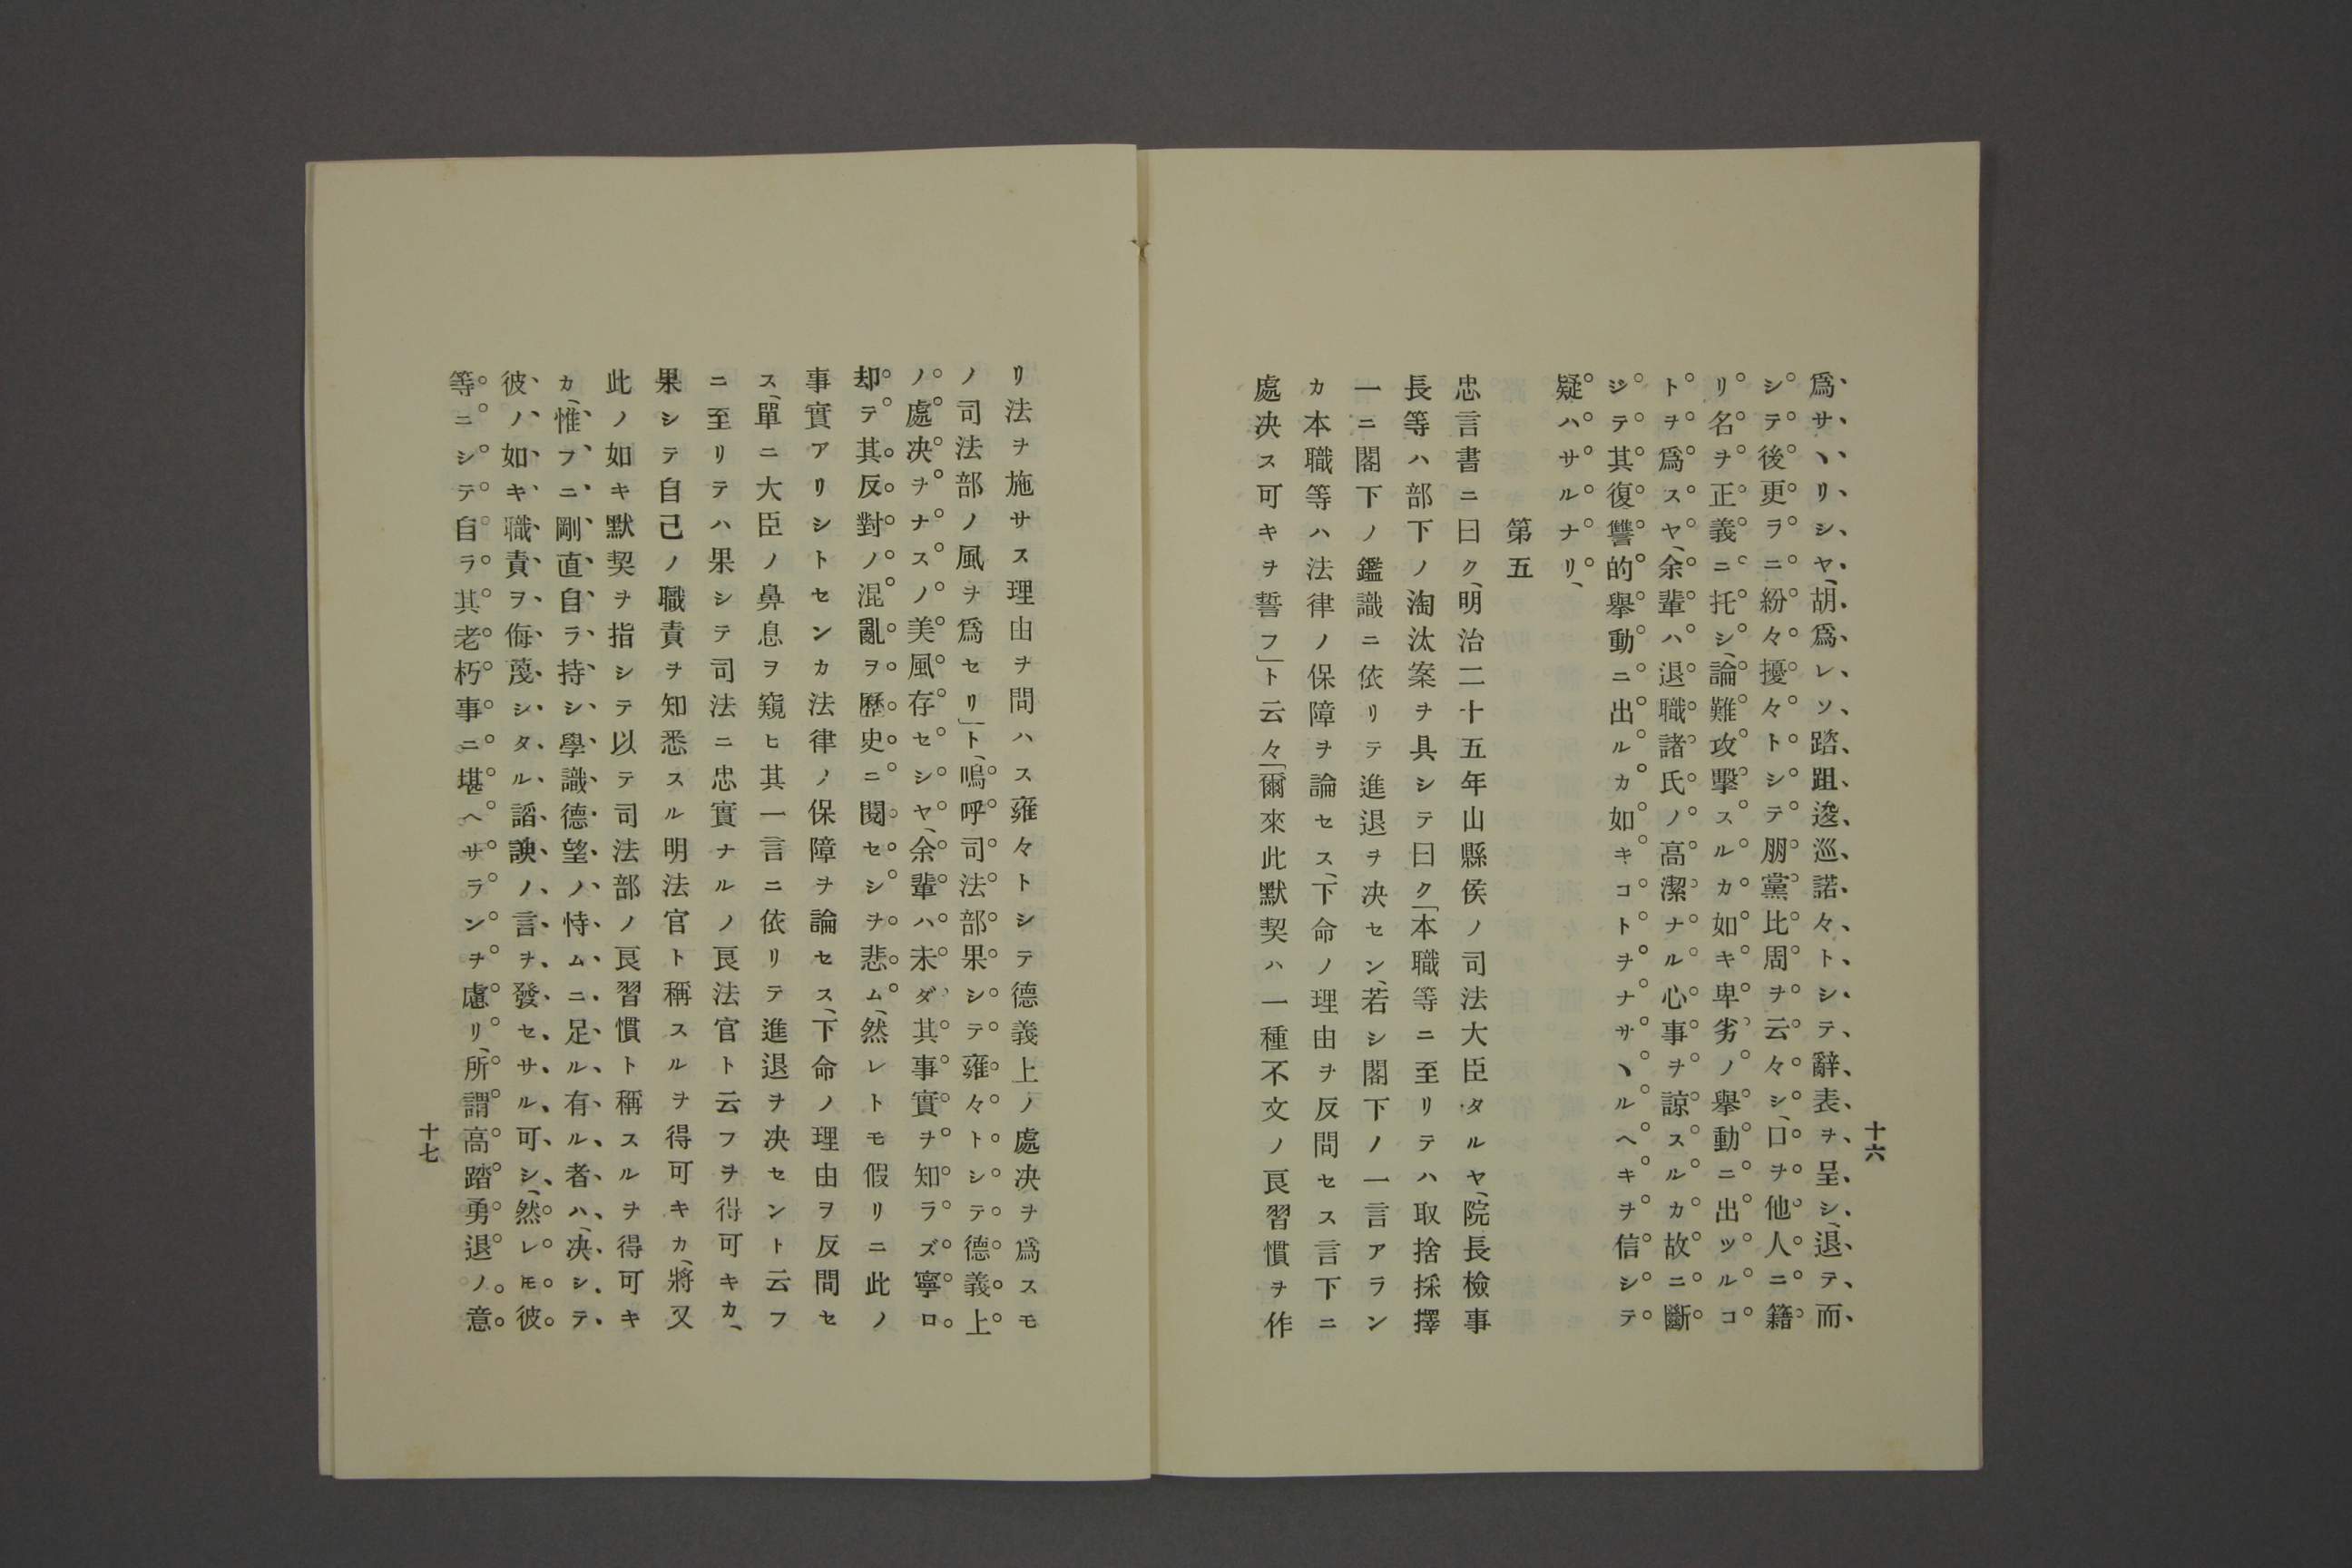 十六
爲サヽリシヤ、胡爲レソ踏跙逡巡諾々トシテ辭表ヲ呈シ、退テ而
シテ後更ラニ紛々擾々トシテ朋黨比周ヲ云々シ、口ヲ他人ニ籍
リ名ヲ正義ニ托シ、論難攻擊スルカ如キ卑劣ノ擧動ニ出ツルコ
トヲ爲スヤ、余輩ハ退職諸氏ノ高潔ナル心事ヲ諒スルカ故ニ斷
ジテ其復讐的擧動ニ出ルカ如キコトヲナサヽルヘキヲ信シテ
疑ハサルナリ、
第五
忠言書ニ曰ク、明治二十五年山縣侯ノ司法大臣タルヤ、院長檢事
長等ハ部下ノ淘汰案ヲ具シテ曰ク「本職等ニ至リテハ取捨採擇
一ニ閣下ノ鑑識ニ依リテ進退ヲ决セン、若シ閣下ノ一言アラン
カ本職等ハ法律ノ保障ヲ論セス、下命ノ理由ヲ反問セス言下ニ
處决ス可キヲ誓フ」ト云々「爾來此默契ハ一種不文ノ良習慣ヲ作
リ法ヲ施サス理由ヲ問ハス雍々トシテ德義上ノ處决ヲ爲スモ
ノ司法部ノ風ヲ爲セリ」ト、嗚呼司法部果シテ雍々トシテ德義上
ノ處决ヲナスノ美風存セシヤ、余輩ハ未ダ其事實ヲ知ラズ寧ロ
却テ其反對ノ混亂ヲ歷史ニ閱セシヲ悲ム、然レトモ假リニ此ノ
事實アリシトセンカ法律ノ保障ヲ論セス、下命ノ理由ヲ反問セ
ス、單ニ大臣ノ鼻息ヲ窺ヒ其一言ニ依リテ進退ヲ决セント云フ
ニ至リテハ果シテ司法ニ忠實ナルノ良法官ト云フヲ得可キカ、
果シテ自己ノ職責ヲ知悉スル明法官ト稱スルヲ得可キカ、將又
此ノ如キ默契ヲ指シテ以テ司法部ノ良習慣ト稱スルヲ得可キ
カ、惟フニ剛直自ラ持シ學識德望ノ恃ムニ足ル有ル者ハ、决シテ
彼ノ如キ職責ヲ侮蔑シタル謟諛ノ言ヲ發セサル可シ、然レモ彼
等ニシテ自ラ其老朽事ニ堪ヘサランヲ慮リ、所謂高踏勇退ノ意
十七